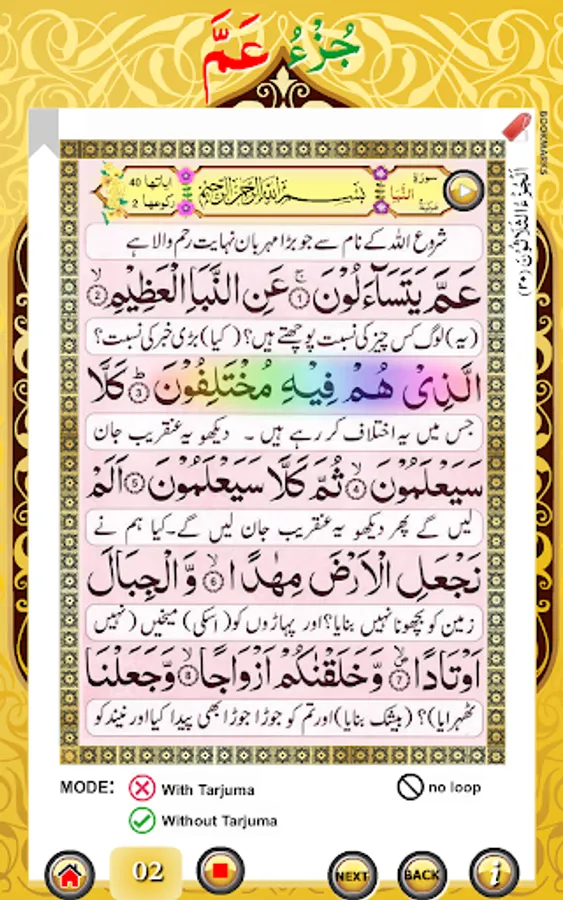 جُزْءُ عَمَّ
BOOKMARKS
اَلْجُزْءُ الثَّلَاثُوْنَ (٣٠)
سورة النَّبَا مكية
بِسْمِ اللهِ الرَّحْمٰنِ الرَّحِيْمِ
اٰیاتها 40
رکوعها 2
شروع اللہ کے نام سے جو بڑا مہربان نہایت رحم والا ہے
عَمَّ یَتَسَآءَلُوْنَ ۚ① عَنِ النَّبَاِ الْعَظِیْمِ ۙ②
(یہ) لوگ کس چیز کی نسبت پوچھتے ہیں؟ (کیا) بڑی خبر کی نسبت؟
الَّذِیْ هُمْ فِیْهِ مُخْتَلِفُوْنَ ؕ③ كَلَّا
جس میں یہ اختلاف کر رہے ہیں ۔ دیکھو یہ عنقریب جان
سَیَعْلَمُوْنَ ۙ④ ثُمَّ كَلَّا سَیَعْلَمُوْنَ ⑤ اَلَمْ
لیں گے پھر دیکھو یہ عنقریب جان لیں گے۔ کیا ہم نے
نَجْعَلِ الْاَرْضَ مِهٰدًا ۙ⑥ وَّ الْجِبَالَ
زمین کو بچھونا نہیں بنایا؟ اور پہاڑوں کو (اسکی) میخیں (نہیں
اَوْتَادًا ۪ۙ⑦ وَّ خَلَقْنٰكُمْ اَزْوَاجًا ۙ⑧ وَّ جَعَلْنَا
ٹھہرایا)؟ (بیشک بنایا) اور تم کو جوڑا جوڑا بھی پیدا کیا اور نیند کو
MODE: With Tarjuma no loop
Without Tarjuma
02 NEXT BACK i